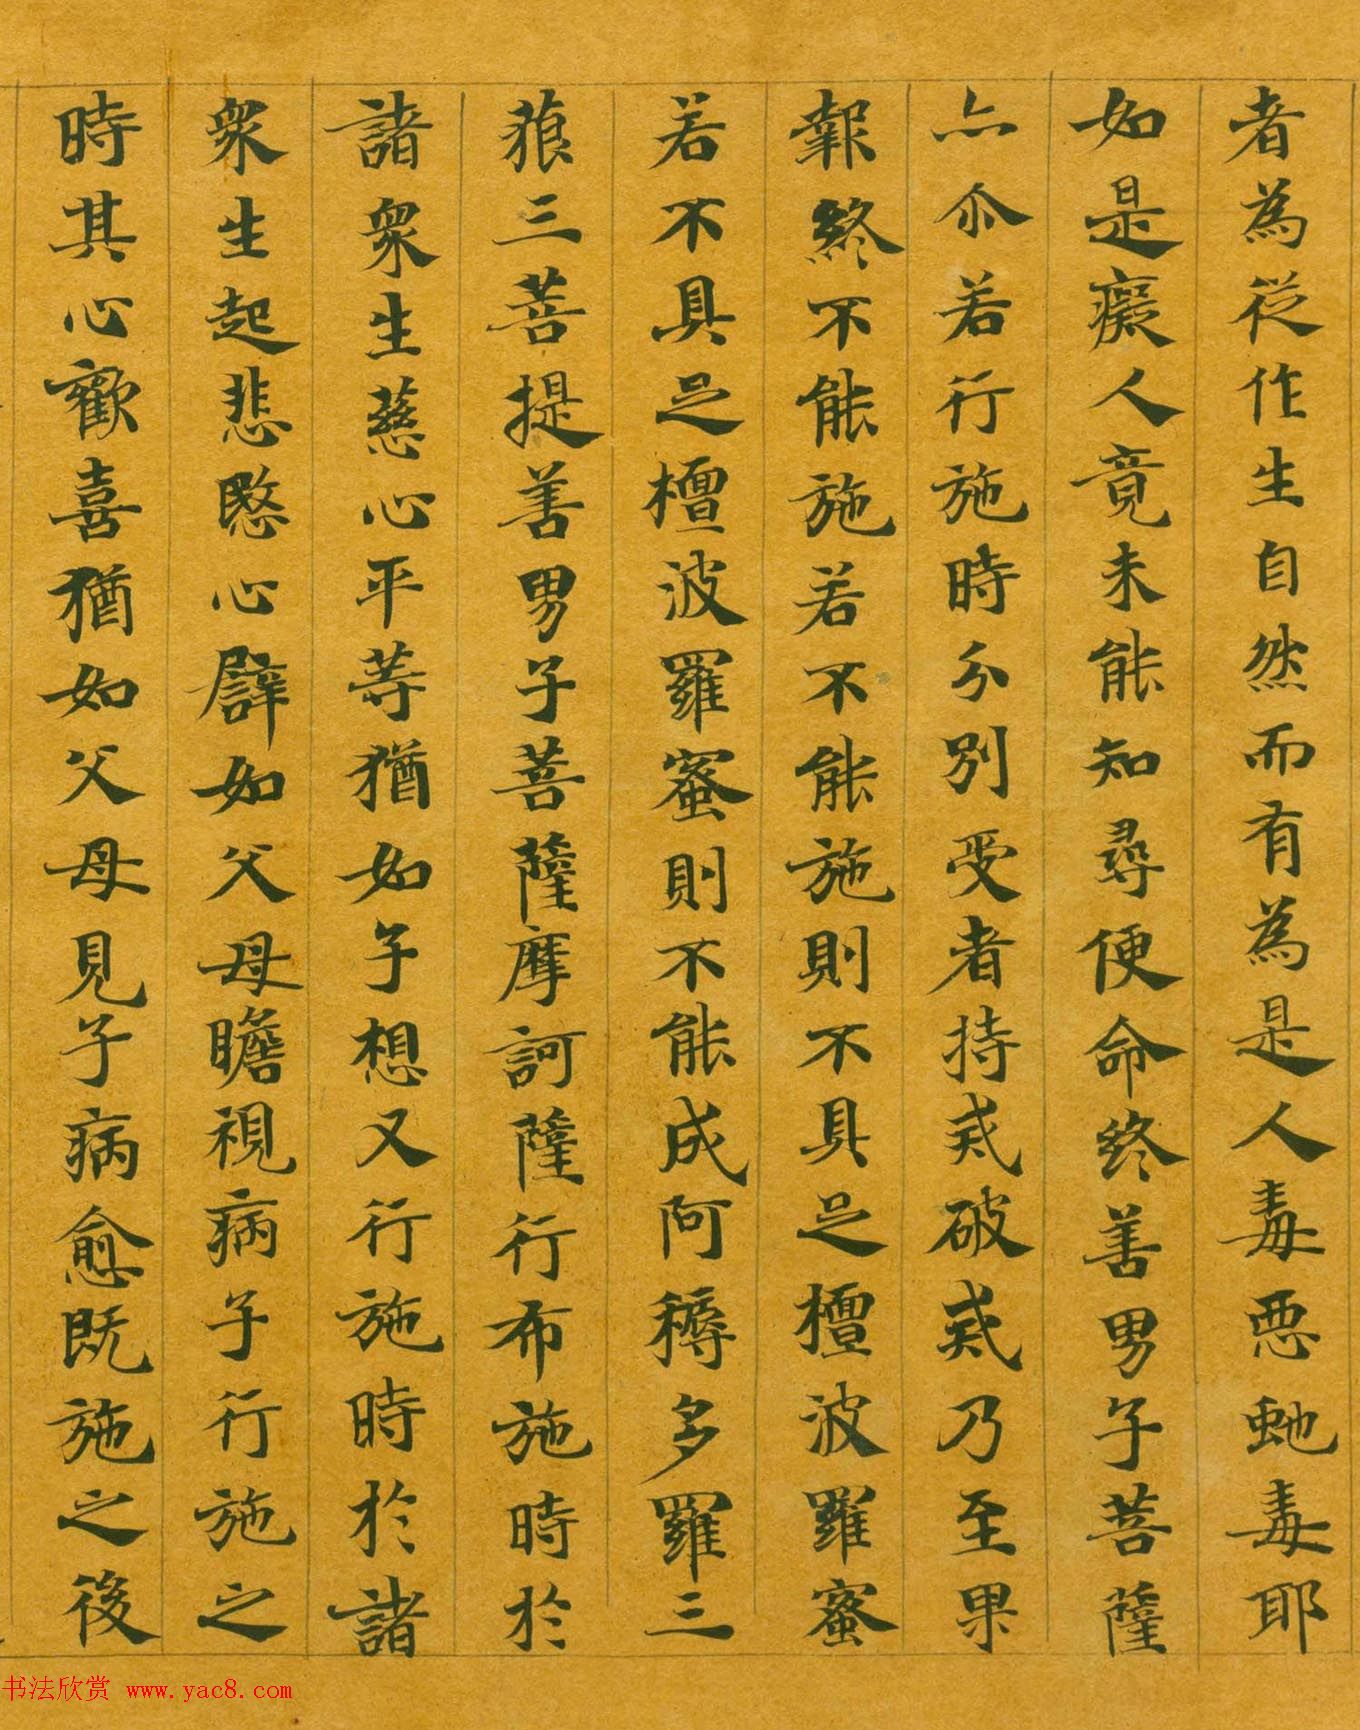 者為從作生自然而有為是人毒惡虵毒耶
如是癡人竟未能知尋便命終善男子菩薩
亦尒若行施時分別受者持戒破戒乃至果
報終不能施若不能施則不具足檀波羅蜜
若不具足檀波羅蜜則不能成阿耨多羅三
藐三菩提善男子菩薩摩訶薩行布施時於
諸衆生慈心平等猶如子想又行施時於諸
衆生起悲愍心譬如父母瞻視病子行施之
時其心歡喜猶如父母見子病愈既施之後
书法欣赏 www.yac8.com